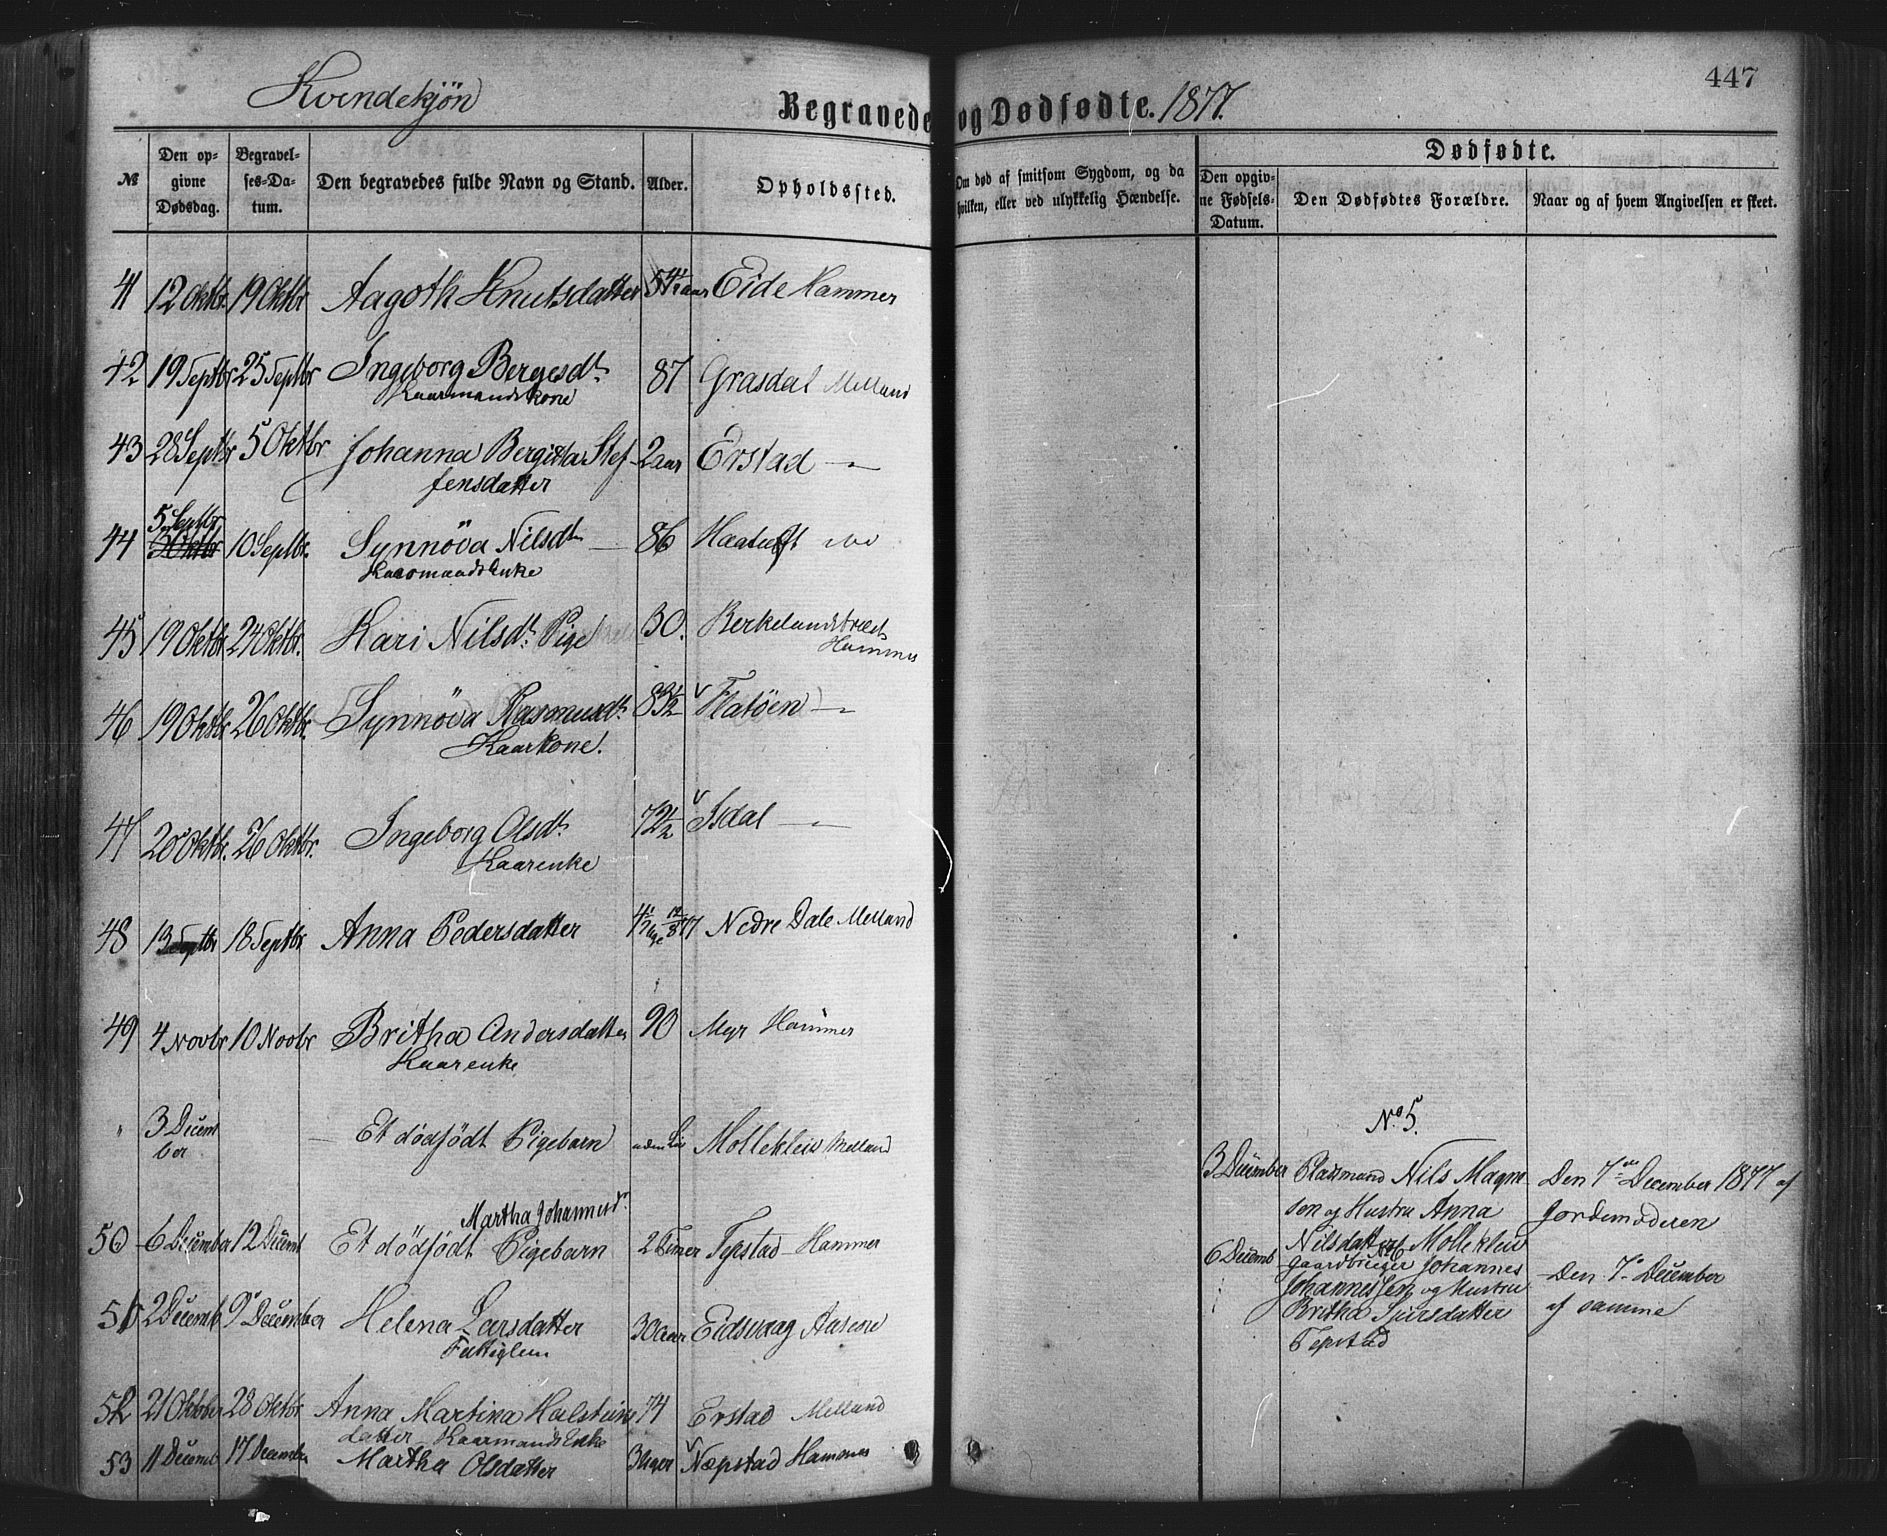 447
Kvindekjön
Begravede og Dødfødte. 1877.
№
Den opgivne Dødsdag.
Begravelses-Datum.
Den begravedes fulde Navn og Stand.
Alder.
Opholdssted.
Om død af smitsom Sygdom, og da hvilken, eller ved ulykkelig Hændelse.
Dødfødte.
Den opgivne Fødsels-Datum.
Den Dødfødtes Forældre.
Naar og af hvem Angivelsen er skeet.
41 12 Oktbr. 19 Oktbr Aagoth Knutsdatter aar Eide Hammer
42 19 Septbr 25 Septbr Ingeborg Bergesdt. 87 Grasdal Melland
Kaarmandskone
43 28 Septbr 5 Oktbr Johanna Bergitha Stef- 2 aar Erstad —"—
fensdatter
5 Septbr
44 10 Septbr. Synnöva Nilsdt. — 86
Kaarmands Enke
45 19 Oktbr 24 Oktbr. Kari Nilsdt. Pige 30. Berkelandstræet
Hammer
46 19 Oktbr 26 Oktbr. Synnöva Rasmusdt. 83 1/2 Flatöen —"—
Kaarkone.
47 20 Oktbr. 26 Oktbr. Ingeborg Olsdt. 72 1/2 Isdal —"—
Kaarenke
48 13 Septbr 18 Septbr Anna Pedersdatter Nedre Dale Melland
49 4 Novbr 10 Novbr Britha Andersdatter 90 Myr Hammer
Kaarenke
" 3 Decem — Et dödfödt Pigebarn uden Liv Molleklev Melland
ber
Martha Johannesdr.
50 6 December 12 Decemb Et dödfödt Pigebarn 2 Timer Tepstad Hammer
51 2 Decemb 9de December Helena Larsdatter 30 aar Eidsvaag Aasene
Fattiglem
52 21 Oktober 28 Oktbr Anna Martina Halsteins 74 Erstad Melland
datter Kaarmands Enke
53 11 Decemb 17 December Martha Olsdatter 3 Uger Næpstad Hammer
No 5.
3 December Pladsmand Nils Magne
sen og Hustru Anna
Nilsdatter Molleklev
Den 7de December 1877 af
Jordemoderen
6 Decemb Gaardbruger Johannes
Johannessen og Hustru
Britha Sjursdatter
Tepstad
Den 7de December
af samme